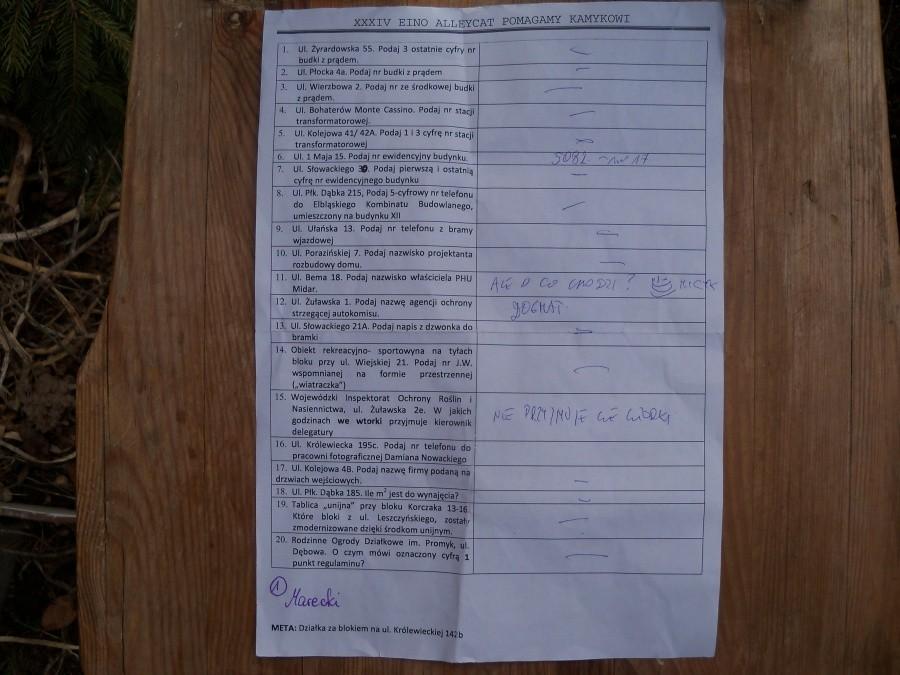 XXXIV EINO ALLEYCAT POMAGAMY KAMYKOWI
1. Ul. Żyrardowska 55. Podaj 3 ostatnie cyfry nr
budki z prądem.
2. Ul. Płocka 4a. Podaj nr budki z prądem
3. Ul. Wierzbowa 2. Podaj nr ze środkowej budki
z prądem.
4. Ul. Bohaterów Monte Cassino. Podaj nr stacji
transformatorowej.
5. Ul. Kolejowa 41/ 42A. Podaj 1 i 3 cyfrę nr stacji
transformatorowej
6. Ul. 1 Maja 15. Podaj nr ewidencyjny budynku.
5082
17
7. Ul. Słowackiego Podaj pierwszą i ostatnią
cyfrę nr ewidencyjnego budynku
8. Ul. Płk. Dąbka 215, Podaj 5-cyfrowy nr telefonu
do Elbląskiego Kombinatu Budowlanego,
umieszczony na budynku XII
9. Ul. Ułańska 13. Podaj nr telefonu z bramy
wjazdowej
10. Ul. Porazińskiej 7. Podaj nazwisko projektanta
rozbudowy domu.
11. Ul. Bema 18. Podaj nazwisko właściciela PHU
Midar.
ALE O CO CHODZI?
12. Ul. Żuławska 1. Podaj nazwę agencji ochrony
strzegącej autokomisu.
DOGMAT.
13. Ul. Słowackiego 21A. Podaj napis z dzwonka do
bramki
14. Obiekt rekreacyjno- sportowyna na tyłach
bloku przy ul. Wiejskiej 21. Podaj nr J.W.
wspomnianej na formie przestrzennej
(„wiatraczka")
15. Wojewódzki Inspektorat Ochrony Roślin i
Nasiennictwa, ul. Żuławska 2e. W jakich
godzinach we wtorki przyjmuje kierownik
delegatury
NIE PRZYJMUJE WE WTORKI
16. Ul. Królewiecka 195c. Podaj nr telefonu do
pracowni fotograficznej Damiana Nowackiego
17. Ul. Kolejowa 4B. Podaj nazwę firmy podaną na
drzwiach wejściowych.
18. Ul. Płk. Dąbka 185. Ile m² jest do wynajęcia?
19. Tablica „unijna" przy bloku Korczaka 13-16.
Które bloki z ul. Leszczyńskiego, zostały
zmodernizowane dzięki środkom unijnym.
20. Rodzinne Ogrody Działkowe im. Promyk, ul.
Dębowa. O czym mówi oznaczony cyfrą 1
punkt regulaminu?
1
Marecki
META: Działka za blokiem na ul. Królewieckiej 142b